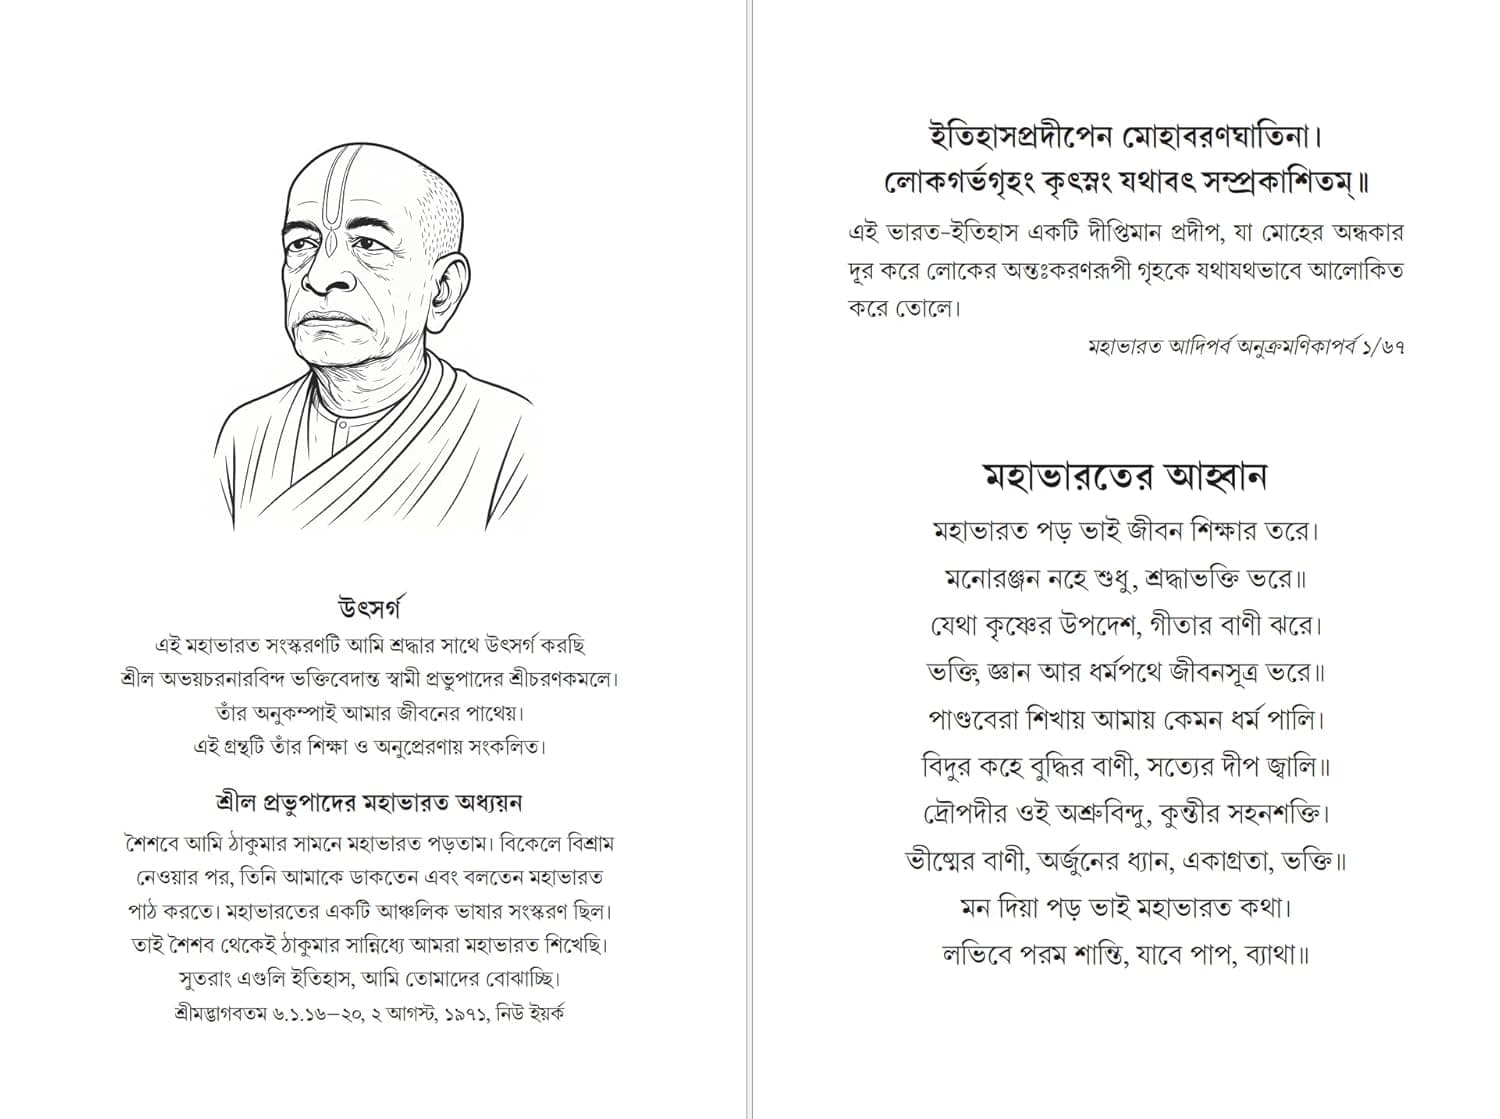 উৎসর্গ
এই মহাভারত সংস্করণটি আমি শ্রদ্ধার সাথে উৎসর্গ করছি
শ্রীল অভয়চরনারবিন্দ ভক্তিবেদান্ত স্বামী প্রভুপাদের শ্রীচরণকমলে।
তাঁর অনুকম্পাই আমার জীবনের পাথেয়।
এই গ্রন্থটি তাঁর শিক্ষা ও অনুপ্রেরণায় সংকলিত।
শ্রীল প্রভুপাদের মহাভারত অধ্যয়ন
শৈশবে আমি ঠাকুমার সামনে মহাভারত পড়তাম। বিকেলে বিশ্রাম
নেওয়ার পর, তিনি আমাকে ডাকতেন এবং বলতেন মহাভারত
পাঠ করতে। মহাভারতের একটি আঞ্চলিক ভাষার সংস্করণ ছিল।
তাই শৈশব থেকেই ঠাকুমার সান্নিধ্যে আমরা মহাভারত শিখেছি।
সুতরাং এগুলি ইতিহাস, আমি তোমাদের বোঝাচ্ছি।
শ্রীমদ্ভাগবতম ৬.১.১৬–২০, ২ আগস্ট, ১৯৭১, নিউ ইয়র্ক
ইতিহাসপ্রদীপেন মোহাবরণঘাতিনা।
লোকগর্ভগৃহং কৃৎস্নং যথাবৎ সম্প্রকাশিতম্॥
এই ভারত-ইতিহাস একটি দীপ্তিমান প্রদীপ, যা মোহের অন্ধকার
দূর করে লোকের অন্তঃকরণরূপী গৃহকে যথাযথভাবে আলোকিত
করে তোলে।
মহাভারত আদিপর্ব অনুক্রমণিকাপর্ব ১/৬৭
মহাভারতের আহ্বান
মহাভারত পড় ভাই জীবন শিক্ষার তরে।
মনোরঞ্জন নহে শুধু, শ্রদ্ধাভক্তি ভরে॥
যেথা কৃষ্ণের উপদেশ, গীতার বাণী ঝরে।
ভক্তি, জ্ঞান আর ধর্মপথে জীবনসূত্র ভরে॥
পাণ্ডবেরা শিখায় আমায় কেমন ধর্ম পালি।
বিদুর কহে বুদ্ধির বাণী, সত্যের দীপ জ্বালি॥
দ্রৌপদীর ওই অশ্রুবিন্দু, কুন্তীর সহনশক্তি।
ভীষ্মের বাণী, অর্জুনের ধ্যান, একাগ্রতা, ভক্তি॥
মন দিয়া পড় ভাই মহাভারত কথা।
লভিবে পরম শান্তি, যাবে পাপ, ব্যাথা॥